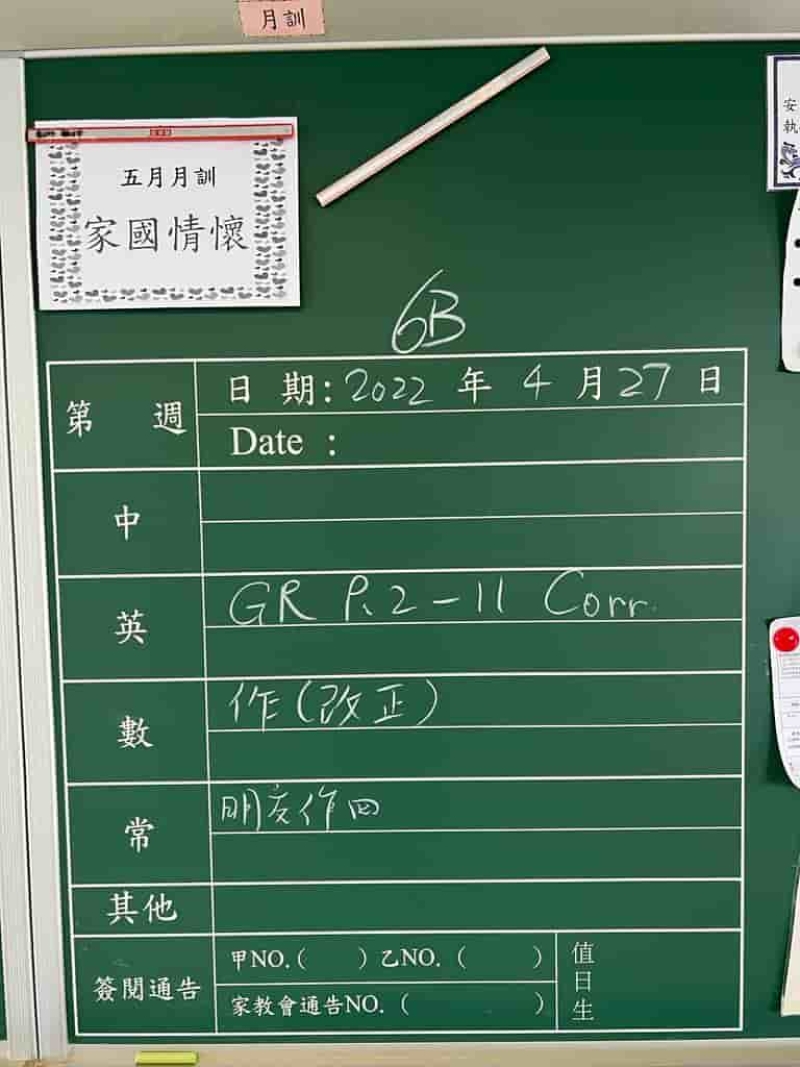 月訓
五月月訓
家國情懷
安
執
6B
第 週
日 期: 2022 年 4 月 27 日
Date :
中
英
GR P.2-11 Corr.
數
作(改正)
常
明友作四
其他
簽閱通告
甲NO.( ) 乙NO. ( )
家教會通告NO. ( )
值日生